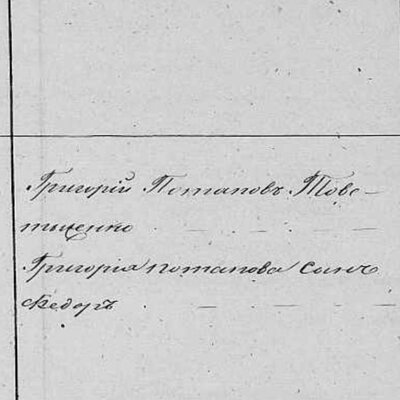 Григорій Потаповъ Товс-
тиценко
Григорія потапова сынъ
Ѳедоръ